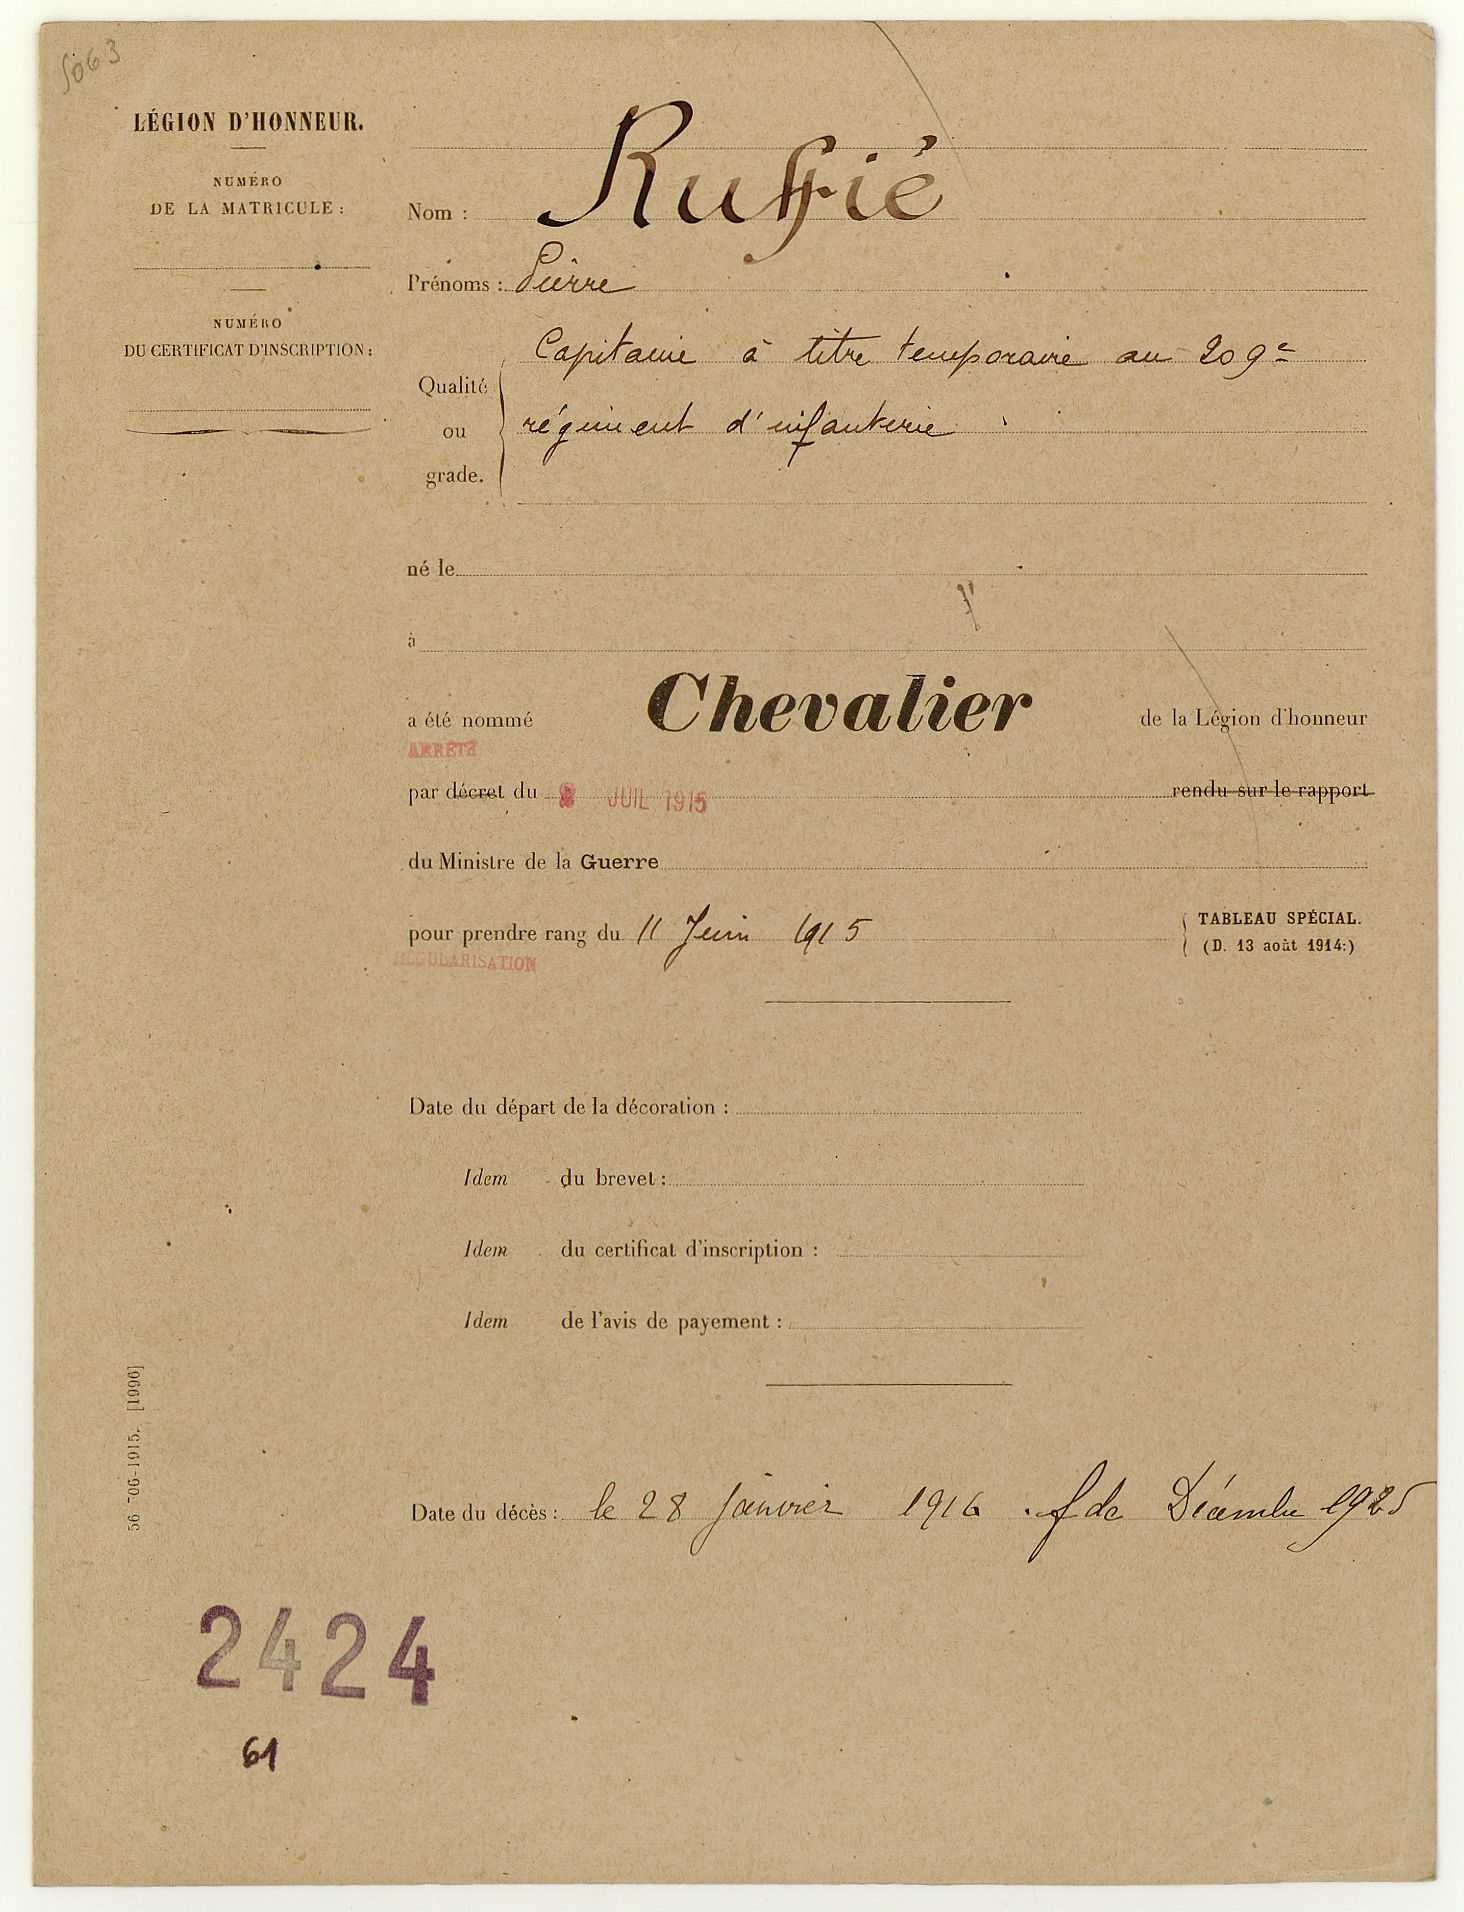 5063
LÉGION D'HONNEUR.
NUMÉRO
DE LA MATRICULE :
NUMÉRO
DU CERTIFICAT D'INSCRIPTION :
Nom : Ruffié
Prénoms : Pierre
Qualité
ou
grade.
Capitaine à titre temporaire au 209e
régiment d'infanterie
né le
à
a été nommé Chevalier de la Légion d'honneur
ARRÊTÉ
par décret du 2 JUIL 1915 rendu sur le rapport
du Ministre de la Guerre
pour prendre rang du 11 Juin 1915
TABLEAU SPÉCIAL.
(D. 13 août 1914.)
RÉGULARISATION
Date du départ de la décoration :
Idem du brevet :
Idem du certificat d'inscription :
Idem de l'avis de payement :
56-06-1915. [1996]
Date du décès : le 28 janvier 1916 . f de Décembre 1925
2424
61